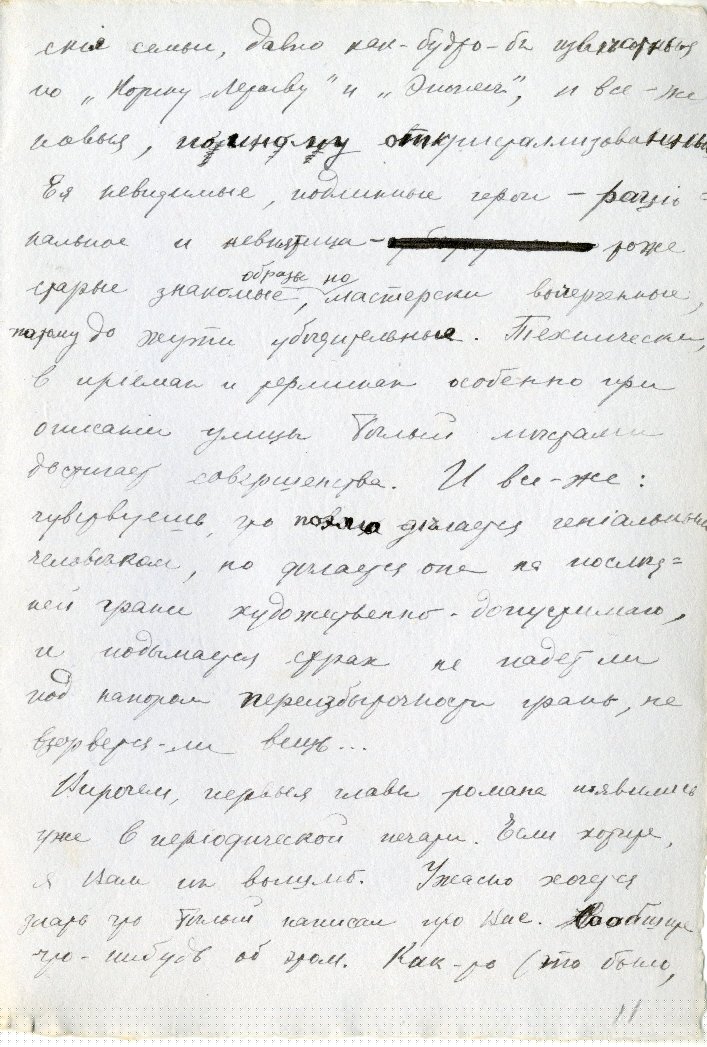 скiя семьи, давно как-будто-бы известныя
по „Котику Летаеву" и „Эпопее", и все-же
новыя, по иному откристаллизованныя.
Ея невидимые, подлинные герои – рацiо=
нальное и невнятица – тоже
старые знакомые, образы но мастерски вычерченные,
потому до жути убедительные. Технически,
в прiемах и терминах особенно при
описанiи улицы Белый местами
достигает совершенства. И все-же:
чувствуешь, что делается генiальным
человеком, но делается она на послед=
ней грани художественно-допустимаго,
и подымается страх не падет ли
под напором переизбыточности грань, не
взорвется-ли вещь...
Впрочем, первыя главы романа появились
уже в перiодической печати. Если хотите,
я Вам их вышлю. Ужасно хочется
знать что Белый написал про Вас. Сообщите
что-нибудь об этом. Как-то (это было,
11